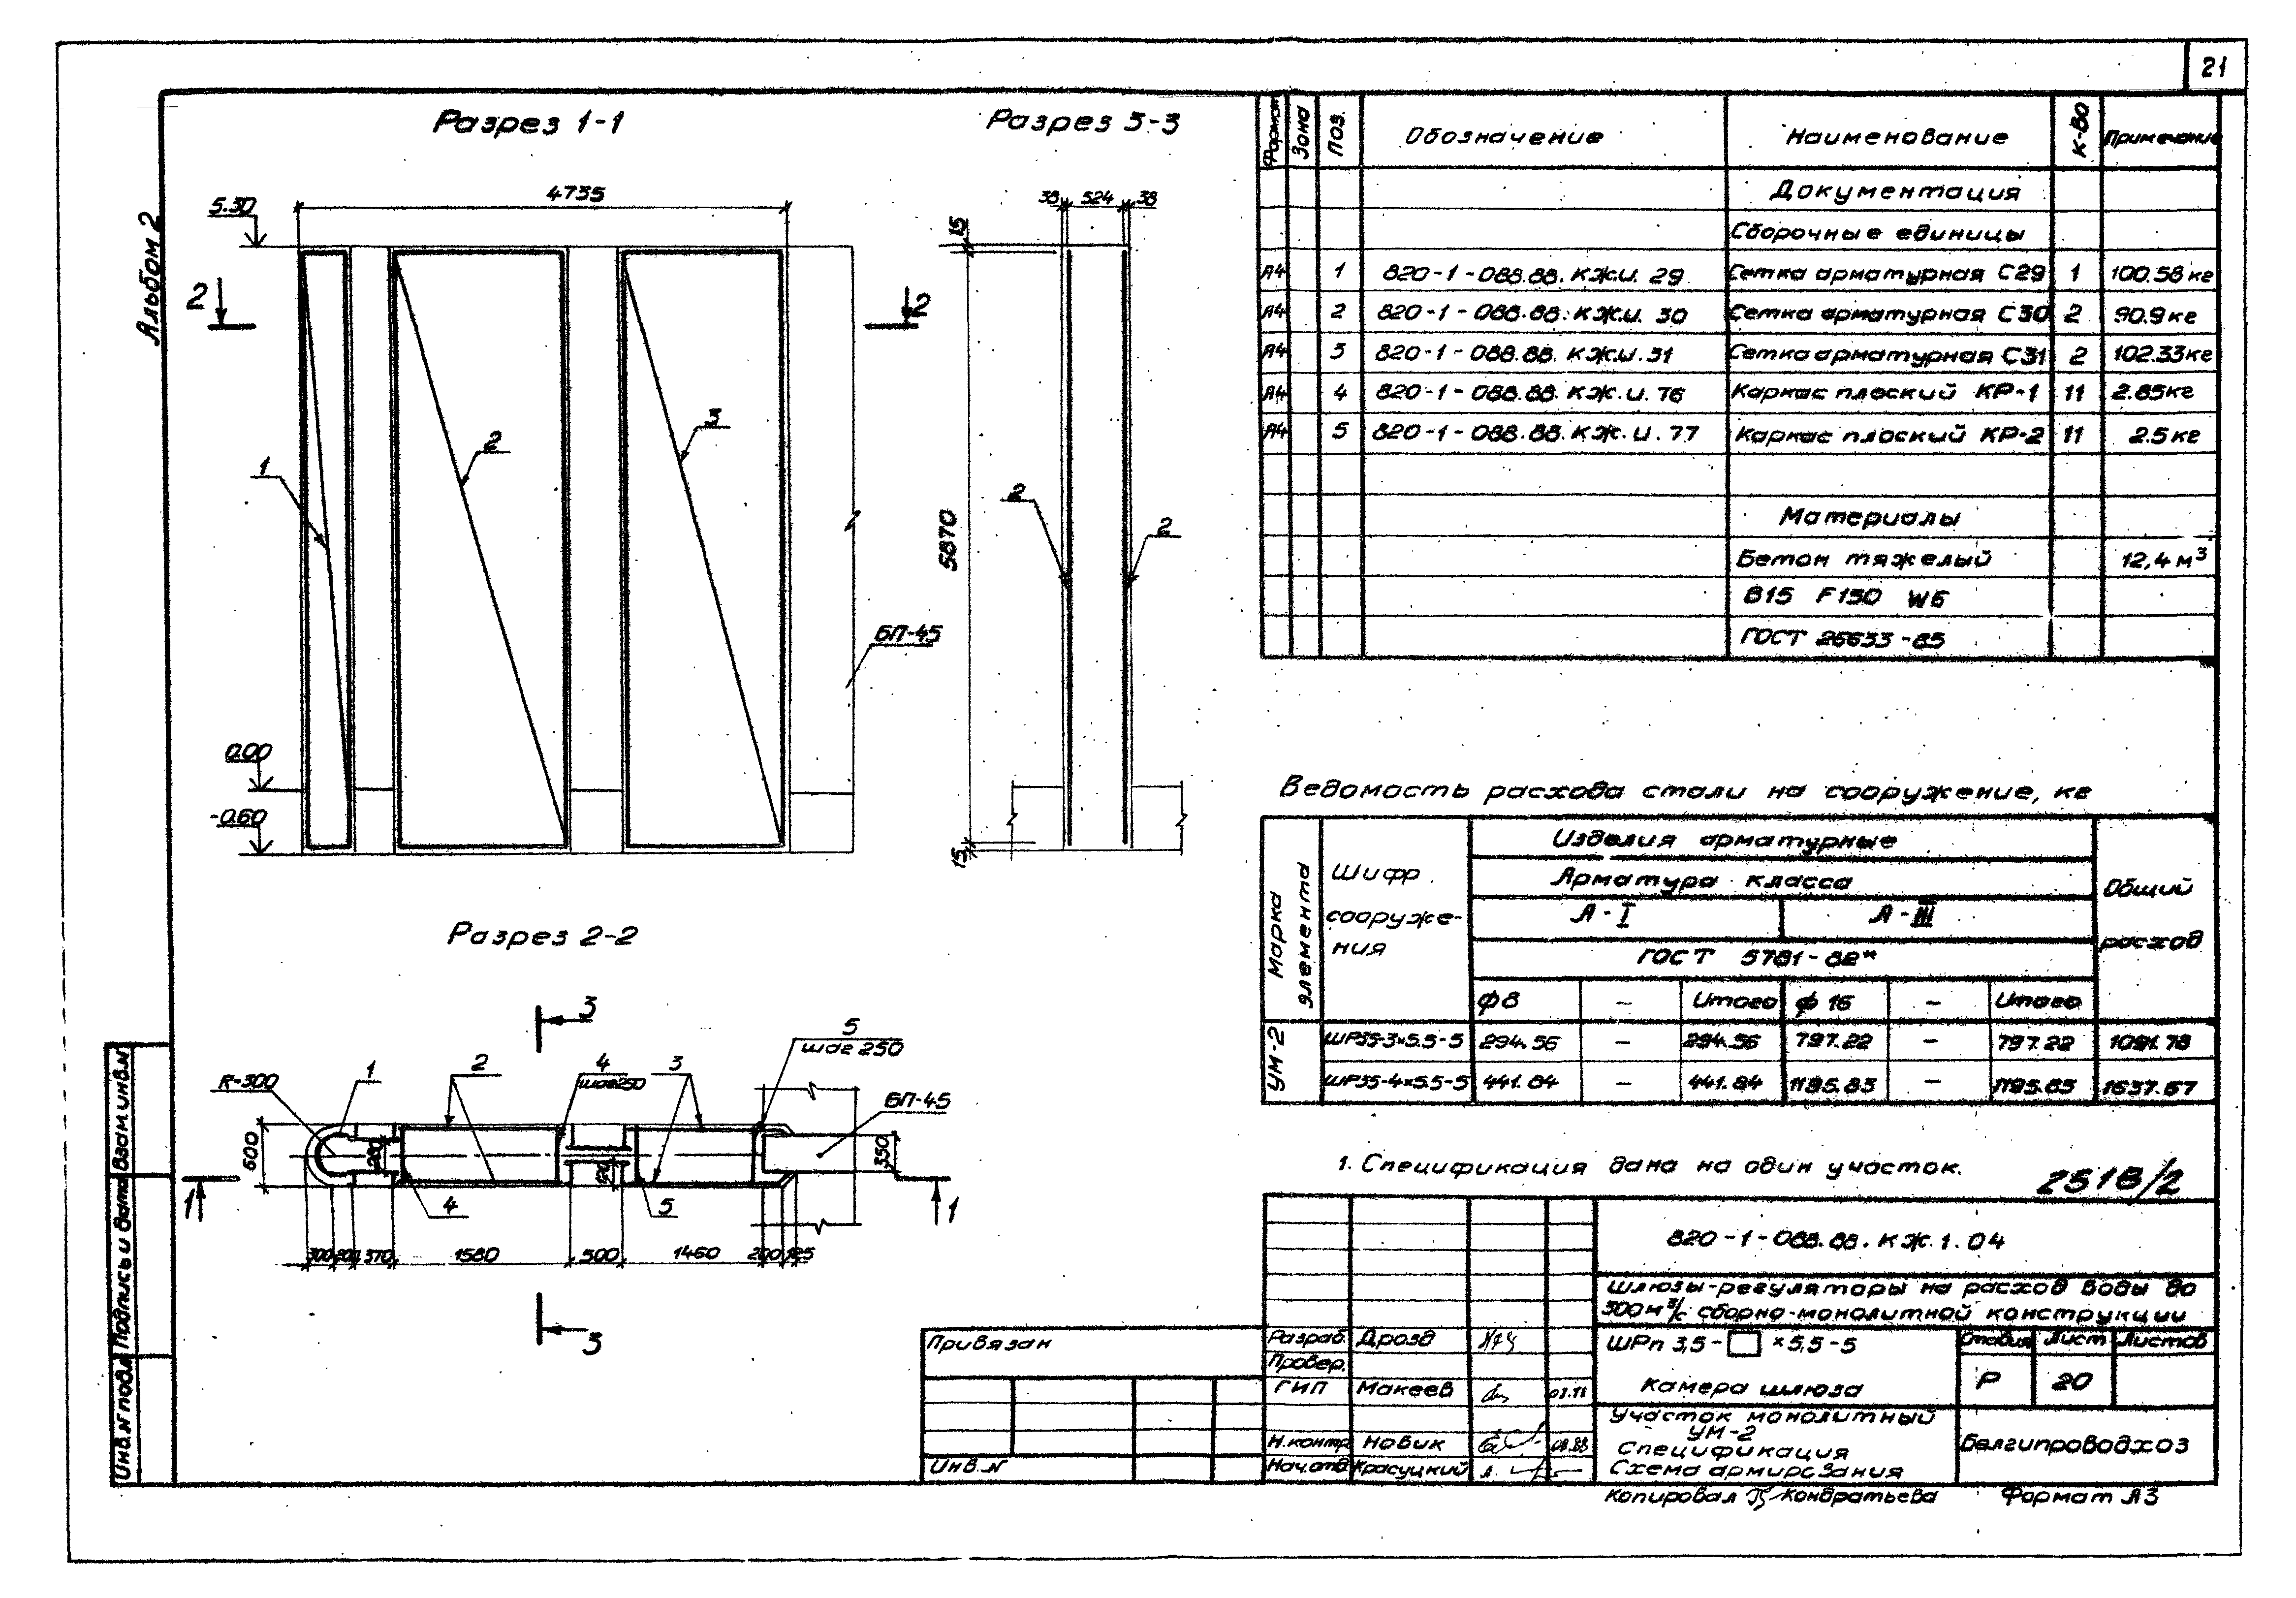 21
Альбом 2
Разрез 1-1
4735
5.30
2
2
1
2
3
БП-45
0.00
-0.60
Разрез 3-3
38 524 38
15
5870
2
2
15
Разрез 2-2
3
5
шаг 250
4
шаг 250
3
2
1
R=300
БП-45
600
350
4
5
1
1
300 200 370 1580 500 1460 200 125
3
Формат Зона Поз. Обозначение Наименование К-во Примечание
Документация
Сборочные единицы
А4 1 820-1-088.88.КЖ.И. 29 Сетка арматурная С29 1 100.58 кг
А4 2 820-1-088.88.КЖ.И. 30 Сетка арматурная С30 2 90.9 кг
А4 3 820-1-088.88.КЖ.И. 31 Сетка арматурная С31 2 102.33 кг
А4 4 820-1-088.88.КЖ.И. 76 Каркас плоский КР-1 11 2.85 кг
А4 5 820-1-088.88.КЖ.И. 77 Каркас плоский КР-2 11 2.5 кг
Материалы
Бетон тяжелый 12,4 м³
В15 F150 W6
ГОСТ 26633-85
Ведомость расхода стали на сооружение, кг
Марка элемента
Шифр сооружения
Изделия арматурные
Арматура класса
А-I А-III
ГОСТ 5781-82*
Общий расход
ф8 — Итого ф 16 — Итого
УМ-2
ШР35-3×5.5-5 294.56 — 294.56 797.22 — 797.22 1091.78
ШР35-4×5.5-5 441.84 — 441.84 1195.83 — 1195.83 1637.67
1. Спецификация дана на один участок.
2518/2
820-1-088.88.КЖ.1.04
Шлюзы-регуляторы на расход воды до
300 м³/с сборно-монолитной конструкции
Привязан
Инв. №
Разраб. Дрозд
Провер.
ГИП Макеев
Н.контр. Новик 08.88
Нач.отд. Красуцкий
ШРп 3,5- ×5,5-5
Камера шлюза
Стадия Лист Листов
Р 20
Участок монолитный
УМ-2
Спецификация
Схема армирования
Белгипроводхоз
Копировал Кондратьева Формат А3
Взам.инв.№
Подпись и дата
Инв.№ подл.